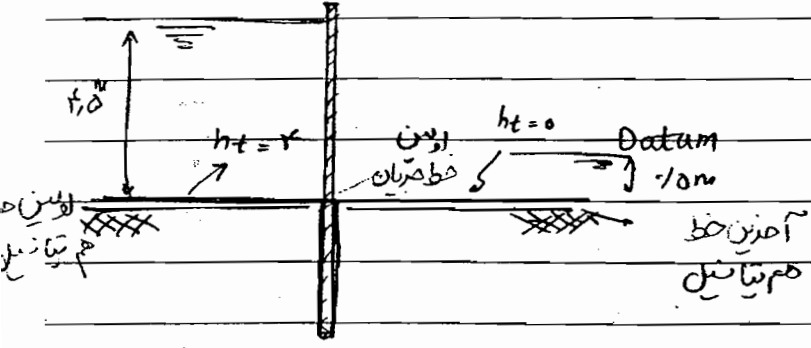 ۴,۵ᵐ
ht = ۴
اولین
خط جریان
ht = ۰
Datum
٫۵m
اولین
هم پتانسیل
آخرین خط
هم پتانسیل